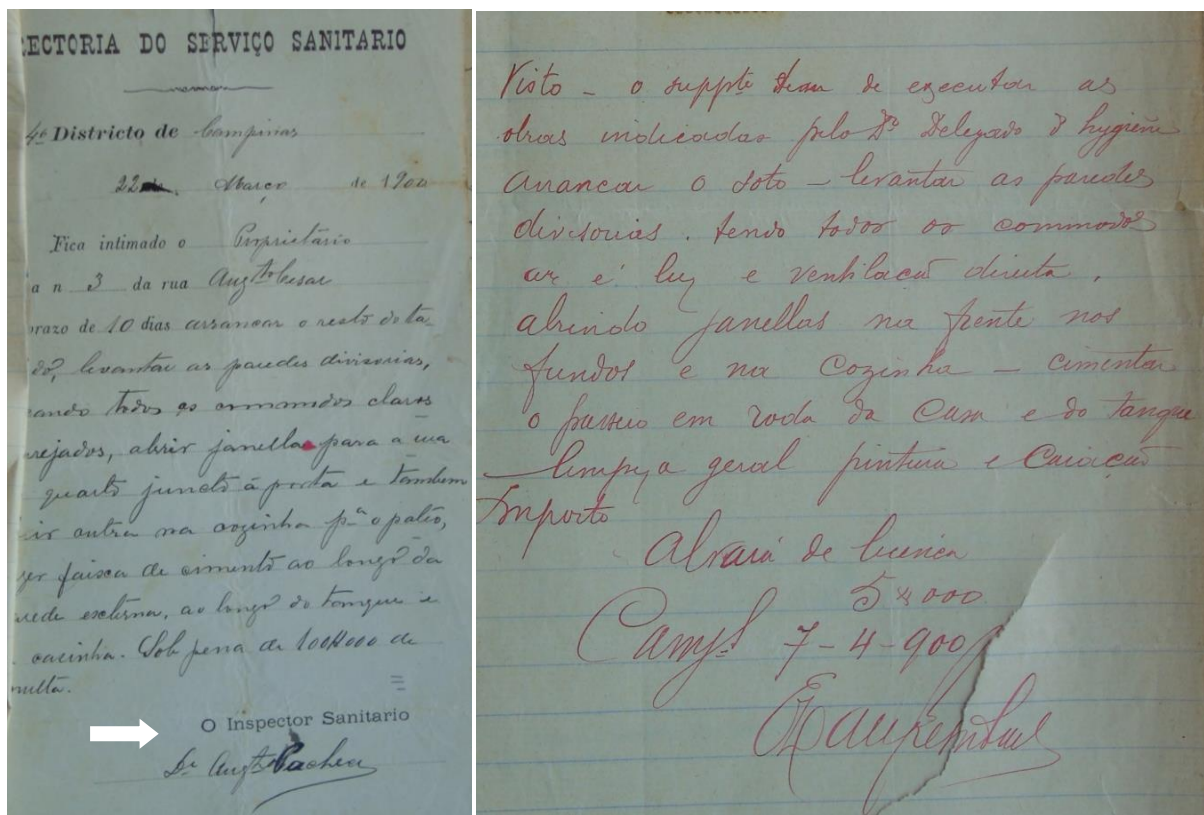 RECTORIA DO SERVIÇO SANITARIO
4º Districto de Campinas
22 Março de 1900
Fica intimado o Proprietário
a n 3 da rua Augto Cesar
prazo de 10 dias arrancar o resto do ta-
do, levantar as paredes divisorias,
cando todos os commodos claros
arejados, abrir janellas para a rua
quarto juncto á porta e tambem
ir outra na cozinha pª o patéo,
zer faixa de cimento ao longo da
arede externa, ao longo do tanque e
casinha. Sob pena de 100$000 de
multa.
O Inspector Sanitario
Dr Augto Pacheco
Visto - o suppte tem de executar as
obras indicadas pelo Dr Delegado d hygiene
arrancar o soto - levantar as paredes
divisorias. tendo todos os commodos
ar e luz e ventilação directa,
abrindo janellas na frente nos
fundos e na Cozinha - cimentar
o passeio em roda da Casa e do tanque
- limpeza geral pintura e Caiação
Importo
Alvará de licença
5$000
Camps 7-4-900